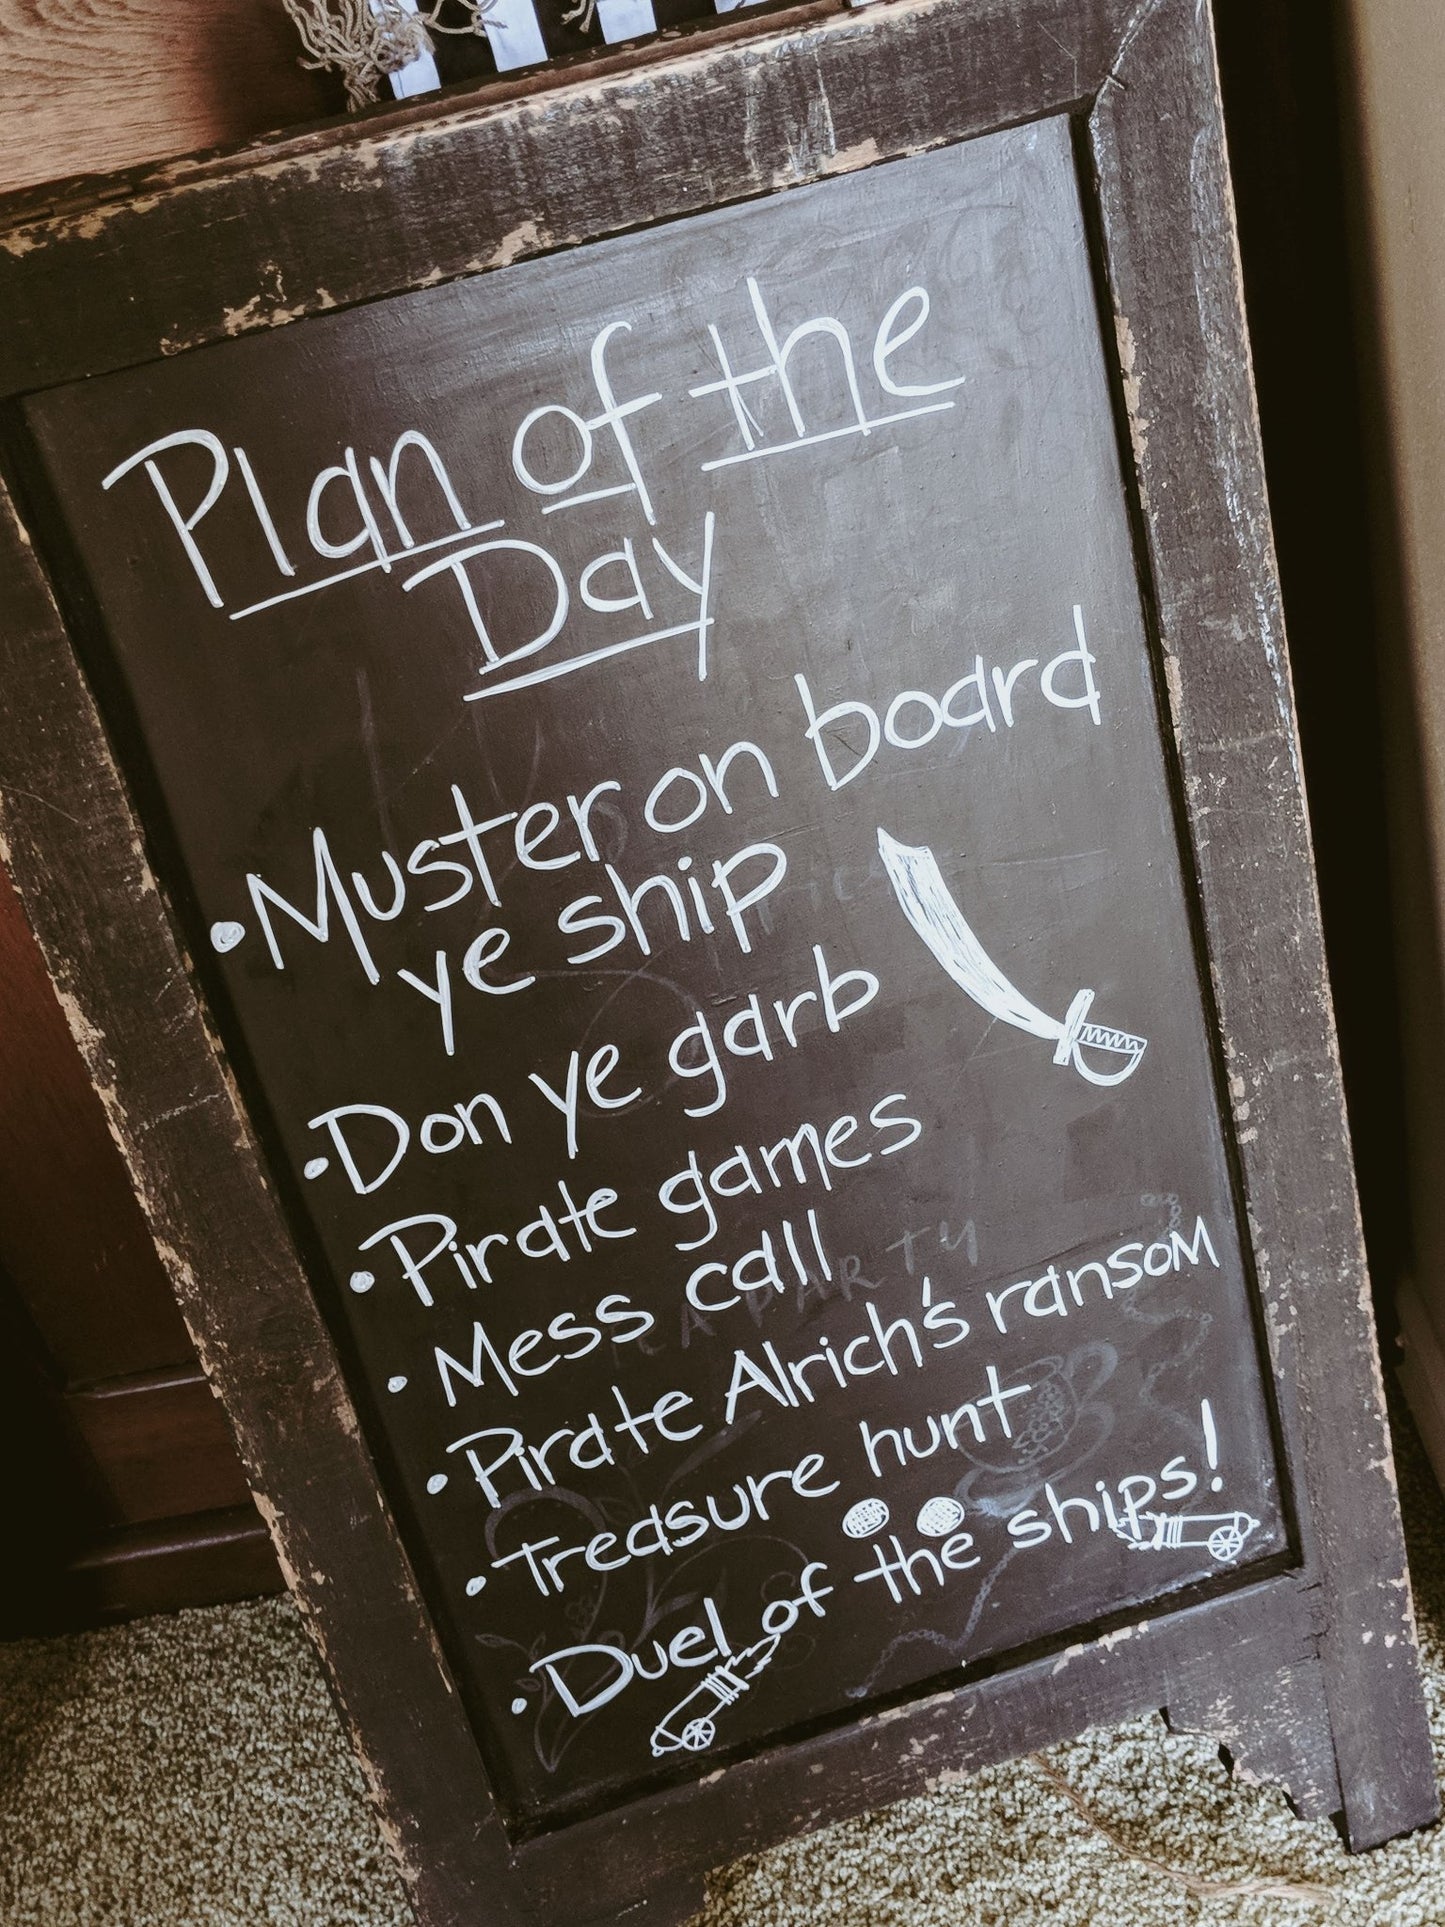 Plan of the
Day
• Muster on board
ye ship
• Don ye garb
• Pirate games
• Mess call
• Pirate Alrich's ransom
• Treasure hunt
• Duel of the ships!
TEA PARTY